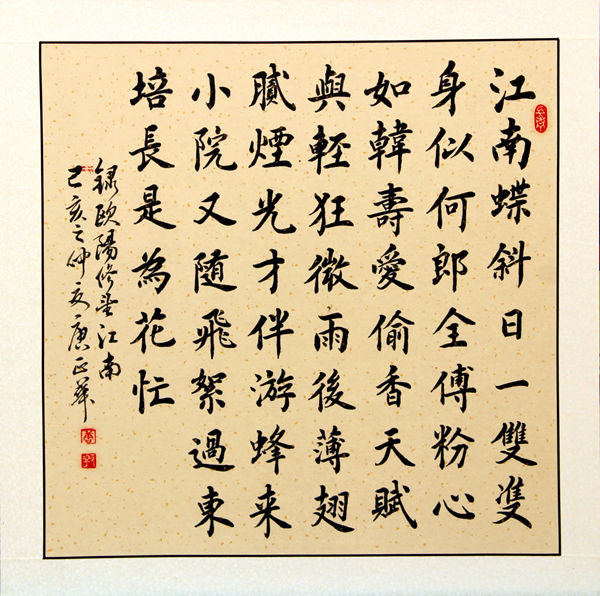 江南蝶斜日一雙雙
身似何郎全傅粉心
如韓壽愛偷香天賦
與輕狂微雨後薄翅
膩煙光才伴游蜂来
小院又随飛絮過東
培長是為花忙
録欧陽修望江南
己亥之仲夏唐正華